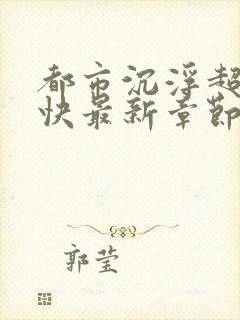 都市沉浮超
快最新章节
郭莹